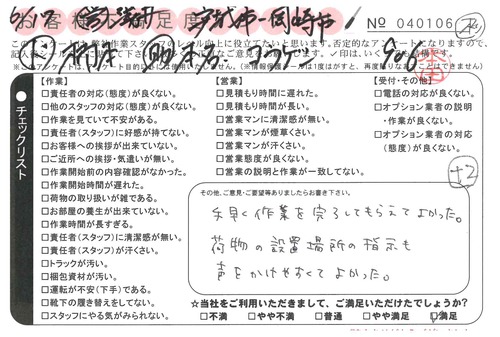 No 040106
この
【作業】
□責任者の対応(態度)が良くない。
□他のスタッフの対応(態度)が良くない。
□作業を見ていて不安がある。
□責任者(スタッフ)に好感が持てない。
□お客様への挨拶が出来ていない。
□ご近所への挨拶・気遣いが無い。
□作業開始前の内容確認がなかった。
□作業開始時間が遅れた。
□荷物の取り扱いが雑である。
□お部屋の養生が出来ていない。
□作業時間が長すぎる。
□責任者(スタッフ)に清潔感が無い。
□責任者(スタッフ)が汗くさい。
□トラックが汚い。
□梱包資材が汚い。
□運転が不安(下手)である。
□靴下の履き替えをしてない。
□スタッフにやる気がみられない。
【営業】
□見積もり時間に遅れた。
□見積もり時間が長い。
□営業マンに清潔感が無い。
□営業マンが煙草くさい。
□営業マンが汗くさい。
□営業態度が良くない。
□営業の説明と作業が一致してない。
【受付・その他】
□電話の対応が良くない。
□オプション業者の説明
・作業が良くない。
□オプション業者の対応
(態度)が良くない。
チェックリスト
+2
その他、ご意見・ご要望等ありましたらお書き下さい。
手早く作業を完了してもらえてよかった。
荷物の設置場所の指示も
声をかけやすくてよかった。
☆当社をご利用いただきまして、ご満足いただけたでしょうか?
□不満 □やや不満 □普通 □やや満足 ☑満足